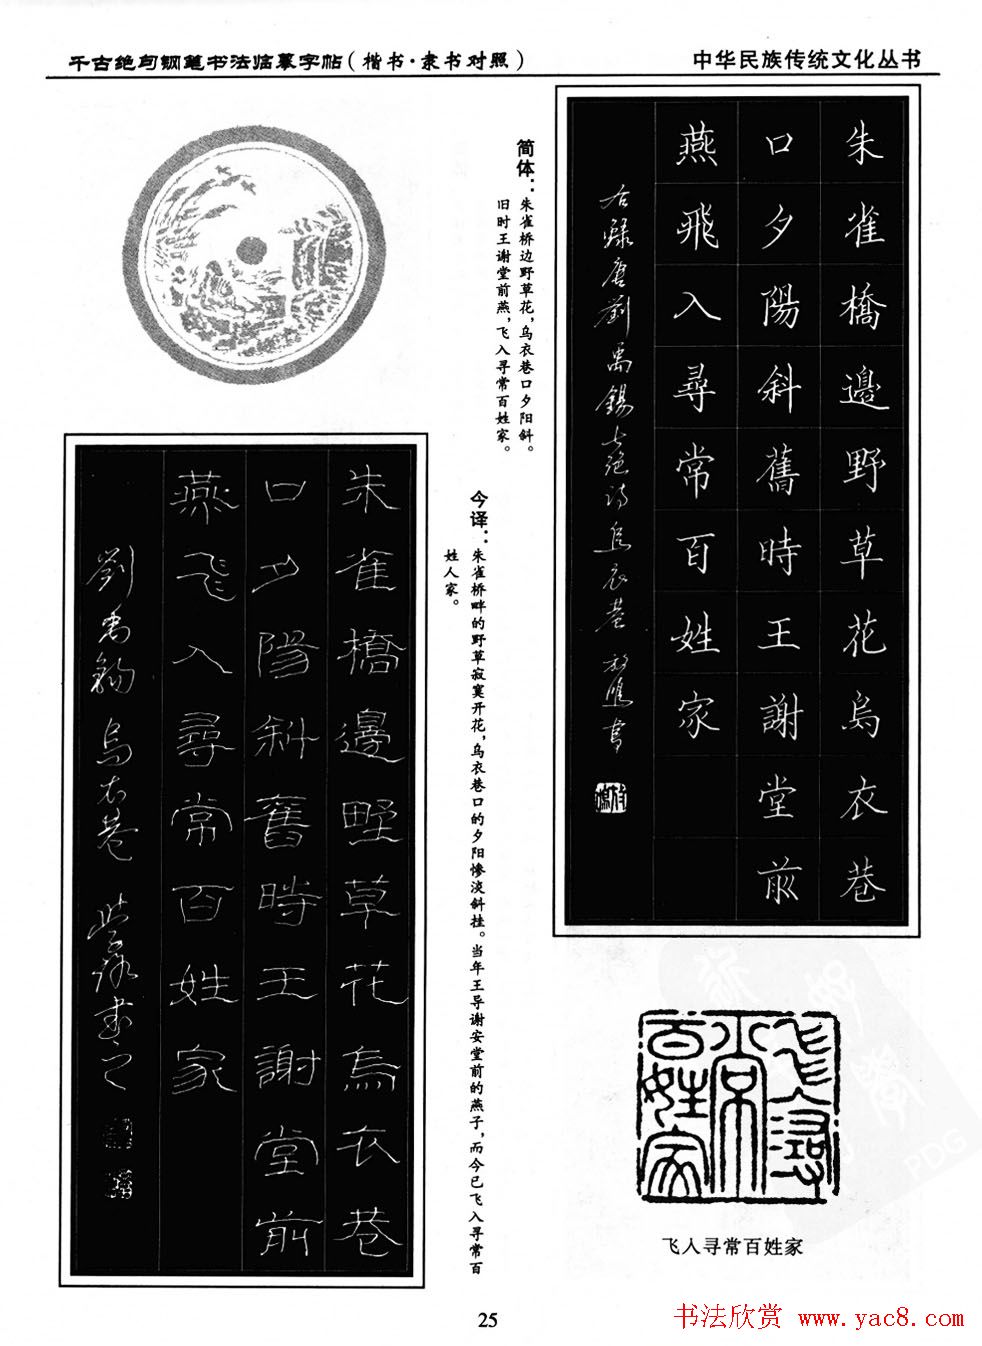 千古绝句钢笔书法临摹字帖（楷书·隶书对照）
中华民族传统文化丛书
朱雀橋邊野草花烏衣巷
口夕陽斜舊時王謝堂前
燕飛入尋常百姓家
右録唐劉禹錫七絶詩烏衣巷
简体：朱雀桥边野草花，乌衣巷口夕阳斜。
旧时王谢堂前燕，飞入寻常百姓家。
今译：朱雀桥畔的野草寂寞开花，乌衣巷口的夕阳惨淡斜挂。当年王导谢安堂前的燕子，而今已飞入寻常百
姓人家。
朱雀橋邊野草花烏衣巷
口夕陽斜舊時王謝堂前
燕飛入尋常百姓家
劉禹錫烏衣巷
飞入尋常百姓家
飞人寻常百姓家
25
书法欣赏 www.yac8.com